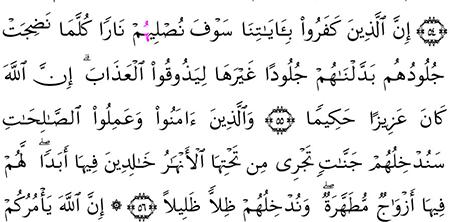 ﴿٥٤﴾ إِنَّ ٱلَّذِينَ كَفَرُوا۟ بِـَٔايَـٰتِنَا سَوْفَ نُصْلِيهُمْ نَارًا كُلَّمَا نَضِجَتْ
جُلُودُهُم بَدَّلْنَـٰهُمْ جُلُودًا غَيْرَهَا لِيَذُوقُوا۟ ٱلْعَذَابَ ۗ إِنَّ ٱللَّهَ
كَانَ عَزِيزًا حَكِيمًا ﴿٥٥﴾ وَٱلَّذِينَ ءَامَنُوا۟ وَعَمِلُوا۟ ٱلصَّـٰلِحَـٰتِ
سَنُدْخِلُهُمْ جَنَّـٰتٍ تَجْرِى مِن تَحْتِهَا ٱلْأَنْهَـٰرُ خَـٰلِدِينَ فِيهَآ أَبَدًا ۖ لَّهُمْ
فِيهَآ أَزْوَٰجٌ مُّطَهَّرَةٌ ۖ وَنُدْخِلُهُمْ ظِلًّا ظَلِيلًا ﴿٥٦﴾ ۞ إِنَّ ٱللَّهَ يَأْمُرُكُمْ